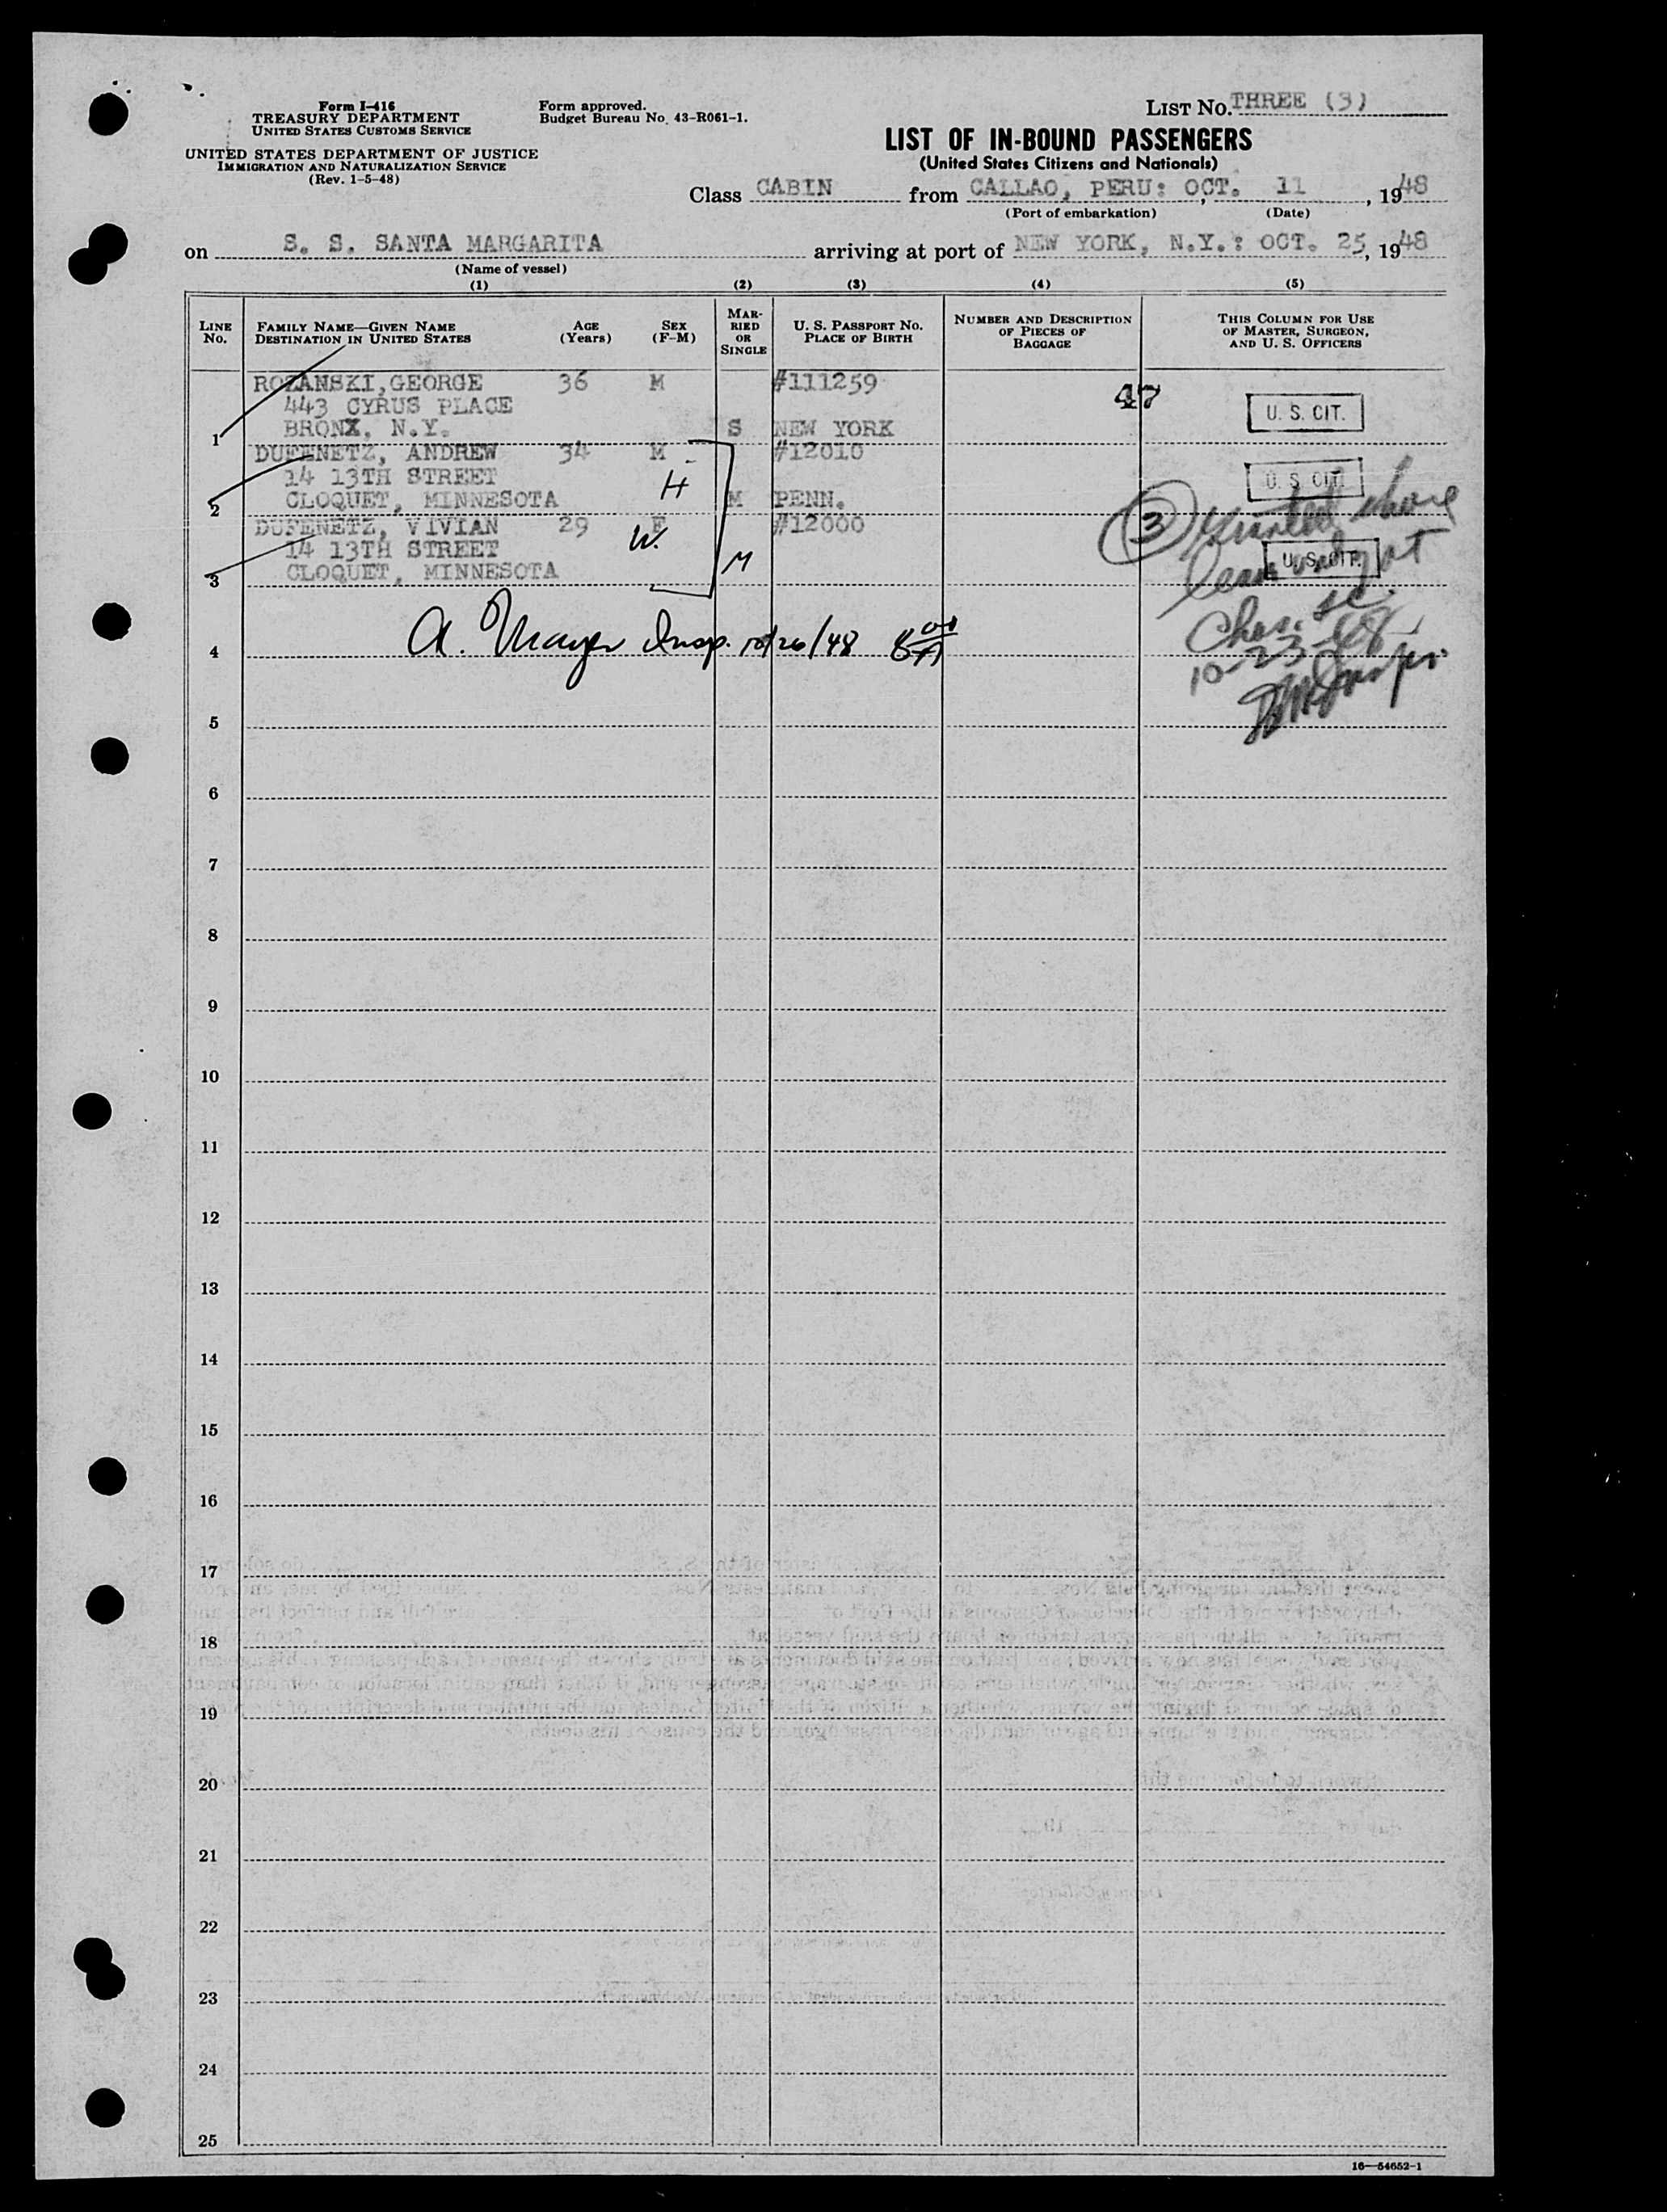 Form I-416
TREASURY DEPARTMENT
UNITED STATES CUSTOMS SERVICE
UNITED STATES DEPARTMENT OF JUSTICE
IMMIGRATION AND NATURALIZATION SERVICE
(Rev. 1-5-48)
Form approved.
Budget Bureau No. 43-R061-1.
LIST NO. THREE (3)
LIST OF IN-BOUND PASSENGERS
(United States Citizens and Nationals)
Class CABIN from CALLAO, PERU: OCT. 11, 1948
(Port of embarkation) (Date)
on S. S. SANTA MARGARITA arriving at port of NEW YORK, N.Y.: OCT. 25, 1948
(Name of vessel)
(1) (2) (3) (4) (5)
LINE No.
FAMILY NAME—GIVEN NAME
DESTINATION IN UNITED STATES
AGE (Years)
SEX (F-M)
MARRIED OR SINGLE
U. S. PASSPORT NO.
PLACE OF BIRTH
NUMBER AND DESCRIPTION OF PIECES OF BAGGAGE
THIS COLUMN FOR USE OF MASTER, SURGEON, AND U. S. OFFICERS
ROZANSKI, GEORGE 36 M #111259
443 CYRUS PLACE 47 U. S. CIT.
1 BRONX, N.Y. S NEW YORK
DUFENETZ, ANDREW 34 M #12010
14 13TH STREET H U. S. CIT.
2 CLOQUET, MINNESOTA M PENN.
DUFENETZ, VIVIAN 29 F W. #12000 3
14 13TH STREET U. S. CIT.
3 CLOQUET, MINNESOTA M
shore
leave at
Chas. SC.
10-23-48
4 A. Mayer Insp. 10/26/48
5
6
7
8
9
10
11
12
13
14
15
16
17
18
19
20
21
22
23
24
25
16—54652-1